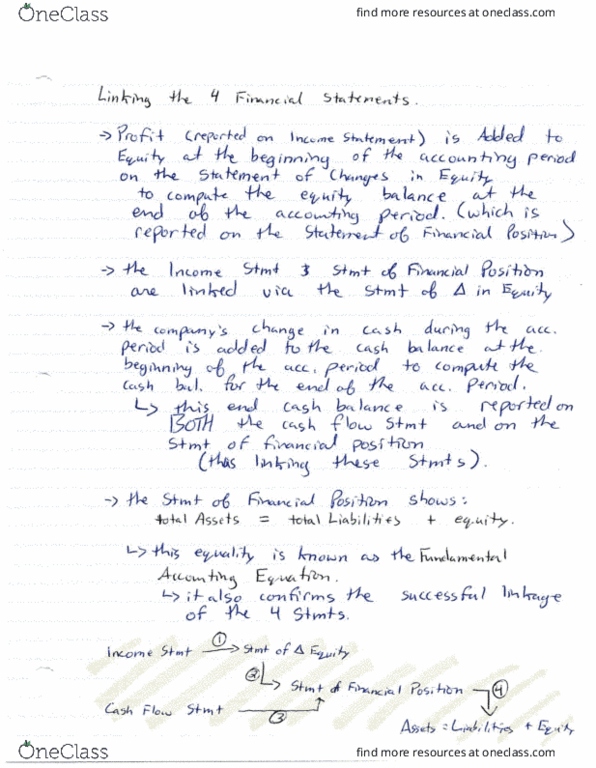 OneClass
find more resources at oneclass.com
Linking the 4 Financial Statements.
→ Profit (reported on Income Statement) is Added to
Equity at the beginning of the accounting period
on the Statement of Changes in Equity
to compute the equity balance at the
end of the accounting period. (which is
reported on the Statement of Financial Position)
→ the Income Stmt & Stmt of Financial Position
are linked via the Stmt of Δ in Equity
→ the company's change in cash during the acc.
period is added to the cash balance at the
beginning of the acc. period to compute the
cash bal. for the end of the acc. Period.
↳ this end cash balance is reported on
BOTH the cash flow Stmt and on the
Stmt of financial position
(thus linking these Stmts).
→ the Stmt of Financial Position shows:
total Assets = total Liabilities + equity.
↳ this equality is known as the Fundamental
Accounting Equation.
↳ it also confirms the successful linkage
of the 4 Stmts.
Income Stmt ① → Stmt of Δ Equity
② ↳ Stmt of Financial Position ④
Cash Flow Stmt ③
Assets = Liabilities + Equity
OneClass
find more resources at oneclass.com